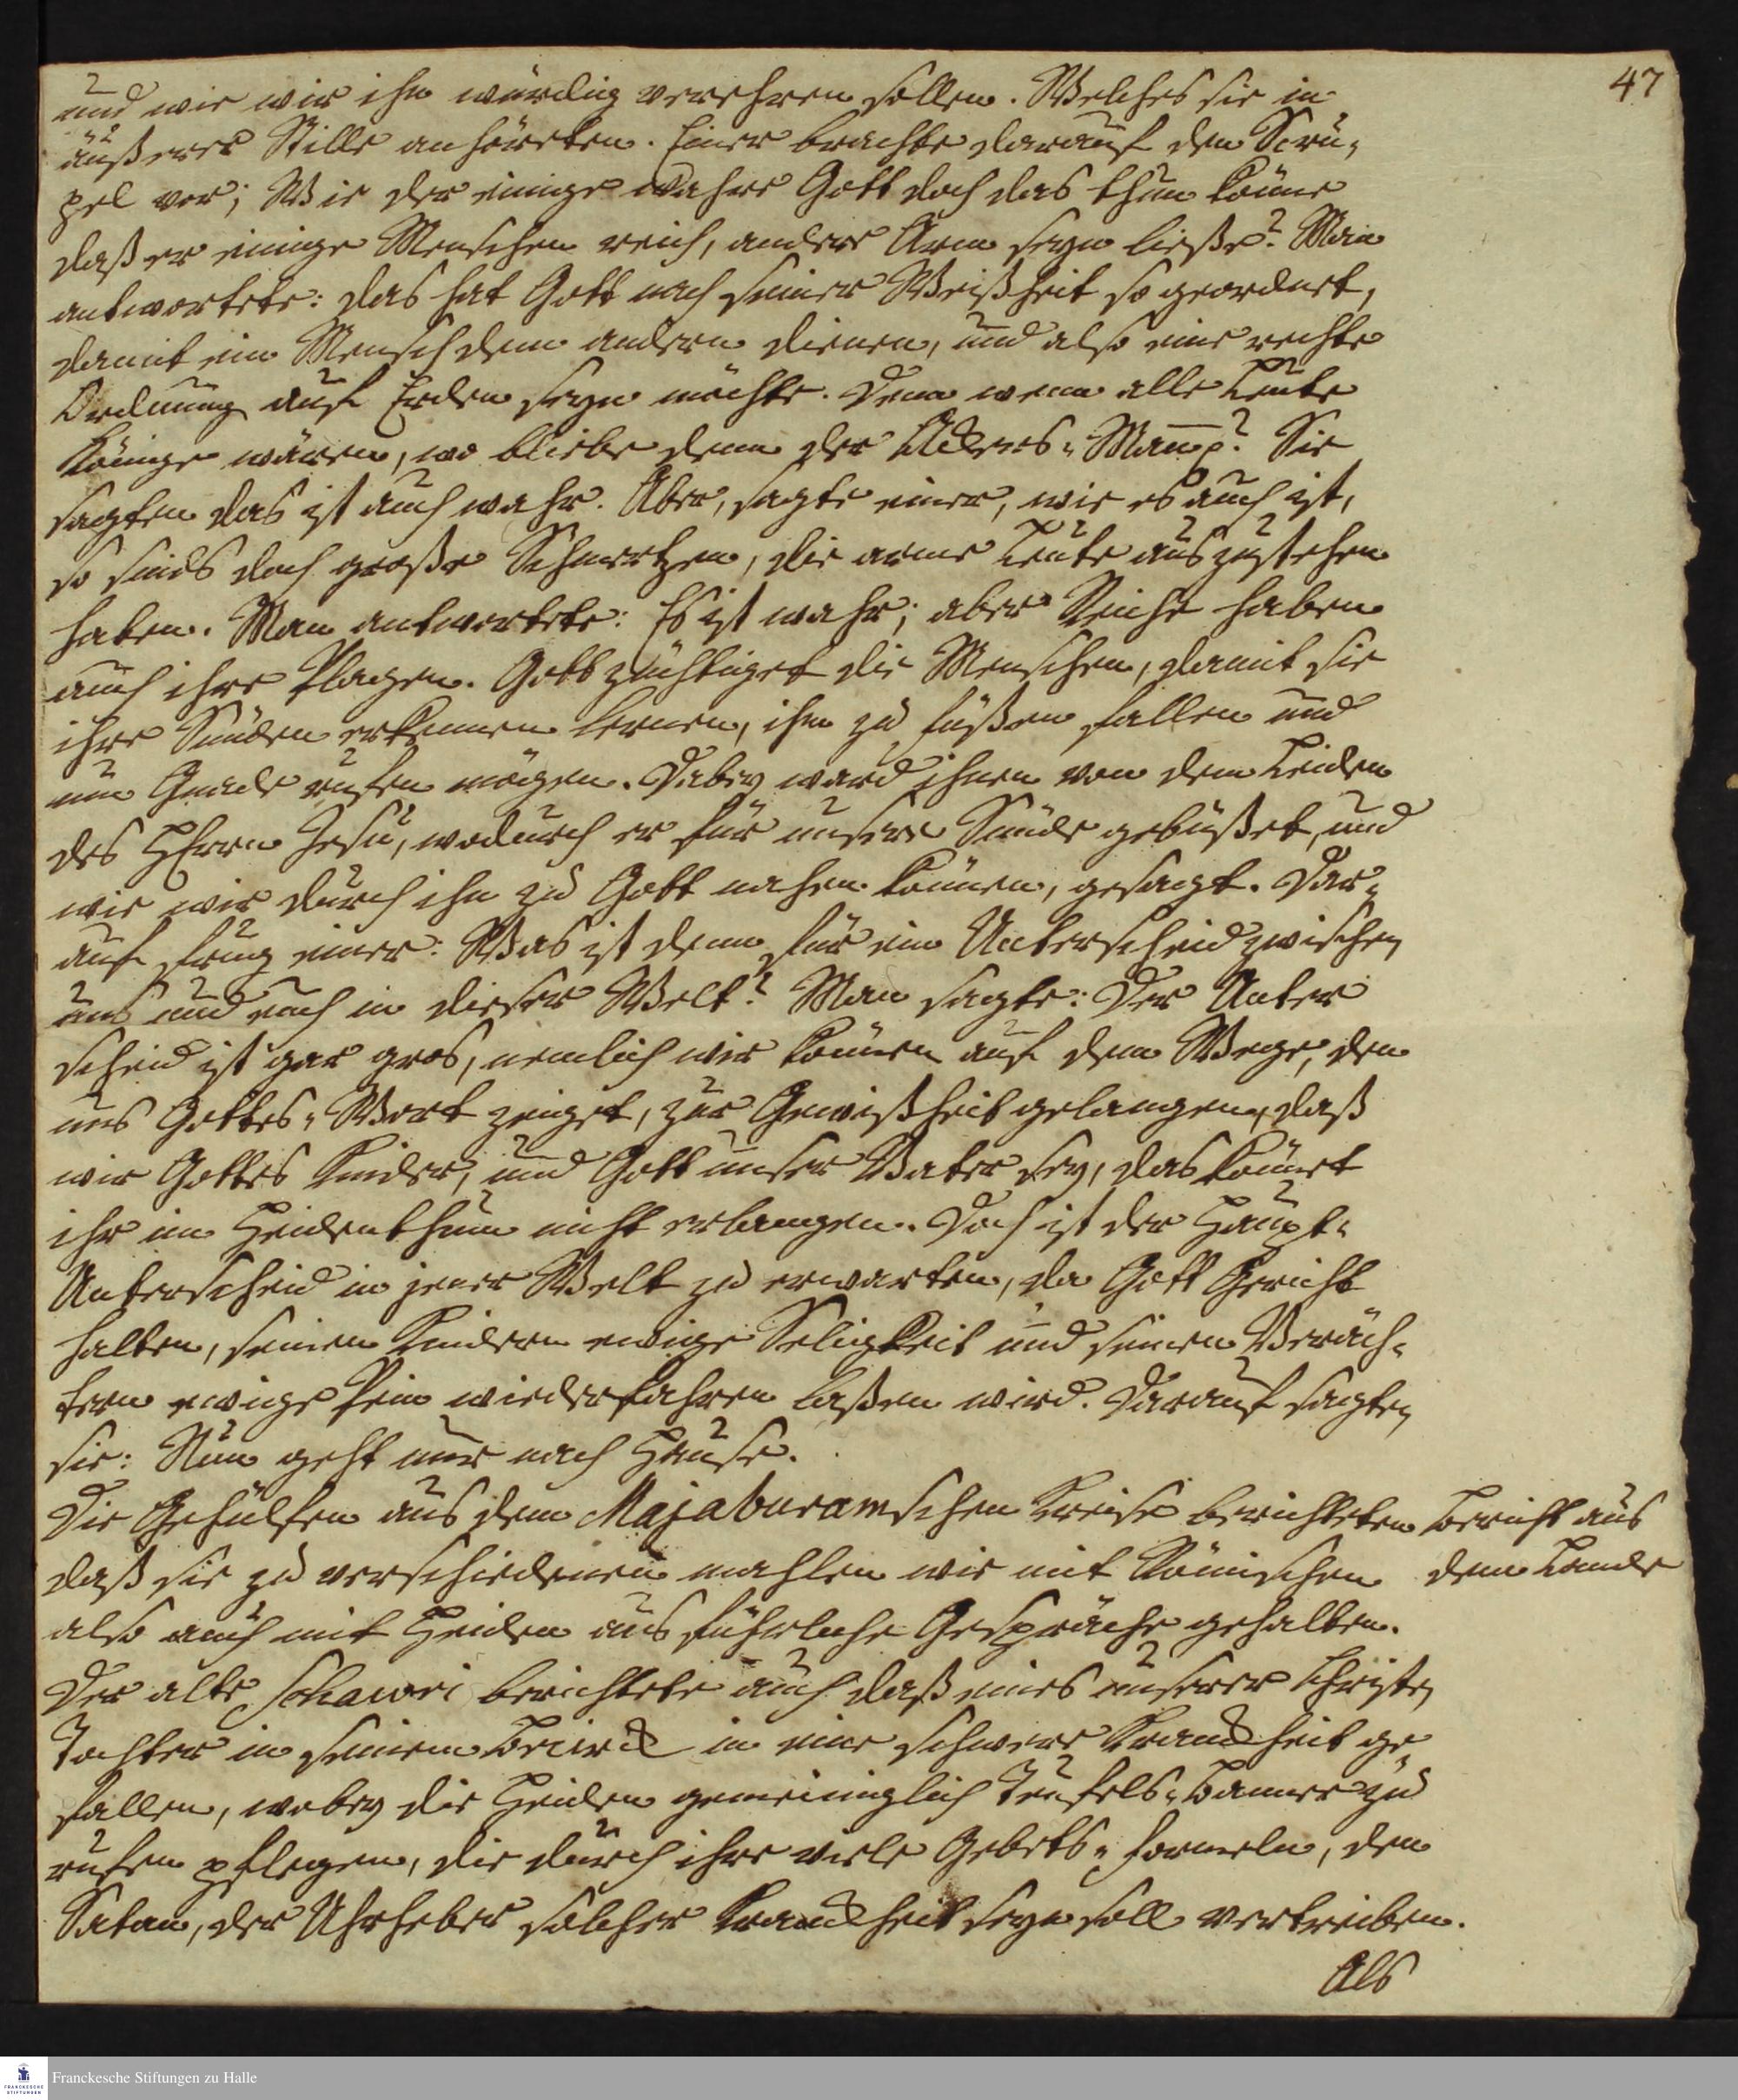 47
und wie wir ihn würdig verehren sollen. Welches sie in
äußerer Stille anhöreten. Einer brachte darauf den Scru-
pel vor; Wie der einige wahre Gott doch das thun könne
daß er einige Menschen reich, andere Arm seyn ließe? Man
antwortete: das hat Gott nach seiner Weißheit so geordnet,
damit ein Mensch dem andern dienen, und also eine rechte
Ordnung auf Erden seyn möchte. Denn wenn alle Leute
Könige wären, wo bliebe denn der Ackers-Mann? Sie
sagten das ist auch wahr. Aber, sagte einer, wie es auch ist,
so sinds doch große Schmertzen, die arme Leute auszustehen
haben. Man antwortete: Es ist wahr; aber Reiche haben
auch ihre Plagen. Gott züchtiget die Menschen, damit sie
ihre Sünden erkennen lernen, ihm zu füßen fallen und
um Gnade rufen mögen. Dabey ward ihnen von dem Leiden
des HErrn Jesu, wodurch er für unsere Sünde gebüßet, und
wie wir durch ihn zu Gott nahen können, gesagt. Dar-
auf frug einer: Was ist denn für ein Unterscheid zwischen
uns und euch in dieser Welt? Man sagte: Der Unter
scheid ist gar gros, nemlich wir können auf dem Wege, den
uns Gottes-Wort zeiget, zur Gewißheit gelangen, daß
wir Gottes Kinder, und Gott unser Vater sey, das könnet
ihr im Heidenthum nicht erlangen. Doch ist der Haupt-
Unterscheid in jener Welt zu erwarten, da Gott Gericht
halten, seinen Kindern ewige Seligkeit und seinen Veräch-
tern ewige Pein wiederfahren laßen wird. Darauf sagten
sie: Nun geht nur nach Hause.
Die Gehülfen aus dem Majaburamschen Kreise berichteten
Bericht aus
dem Lande
daß sie zu verschiedenen mahlen wie mit Römischen
also auch mit Heiden ausführliche Gespräche gehalten.
Der alte Schawri berichtete auch daß eines unserer Christen
Tochter in seinem Bezirck in eine schwere Kranckheit ge
fallen, wobey die Heiden gemeiniglich Teufels-Banner zu
rufen pflegen, die durch ihre viele Gebets-formeln, den
Satan, der Uhrheber solcher Kranckheit seyn soll vertreiben.
Als
Franckesche Stiftungen zu Halle
FRANCKESCHE
STIFTUNGEN